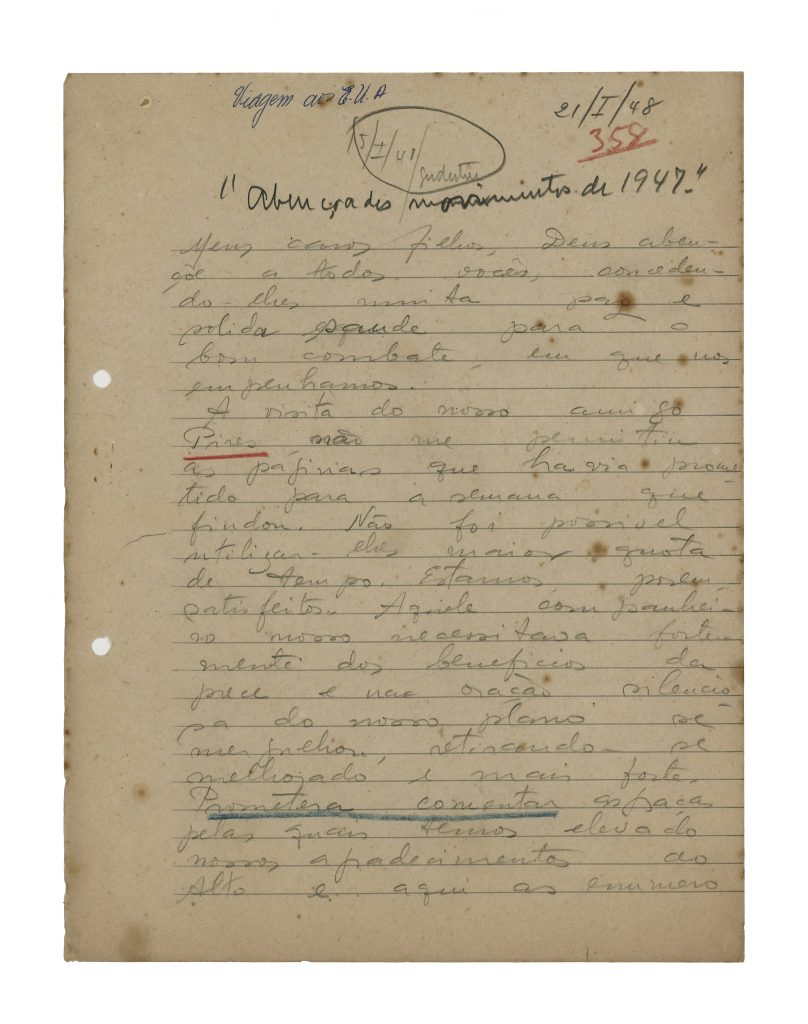 Viagem aos E.U.A
21/I/48
15/I/48/
358
"Abençoados movimentos de 1947."
Meus caros filhos, Deus aben-
çôe a todos vocês, conceden-
do-lhes muita paz e
solida saude para o
bom combate em que nos
empenhamos.
A visita do nosso amigo
Pires não me permitiu
as páginas que havia prome-
tido para a semana que
findou. Não foi possivel
utilizar-lhes maior quota
de tempo. Estamos, porem,
satisfeitos. Aquele companhei-
ro nosso necessitava forte-
mente dos beneficios da
prece e na oração silencio-
sa do nosso plano se
mergulhou, retirando-se
melhorado e mais forte.
Prometera comentar as graças
pelas quais temos elevado
nossos agradecimentos ao
Alto e aqui as enumero